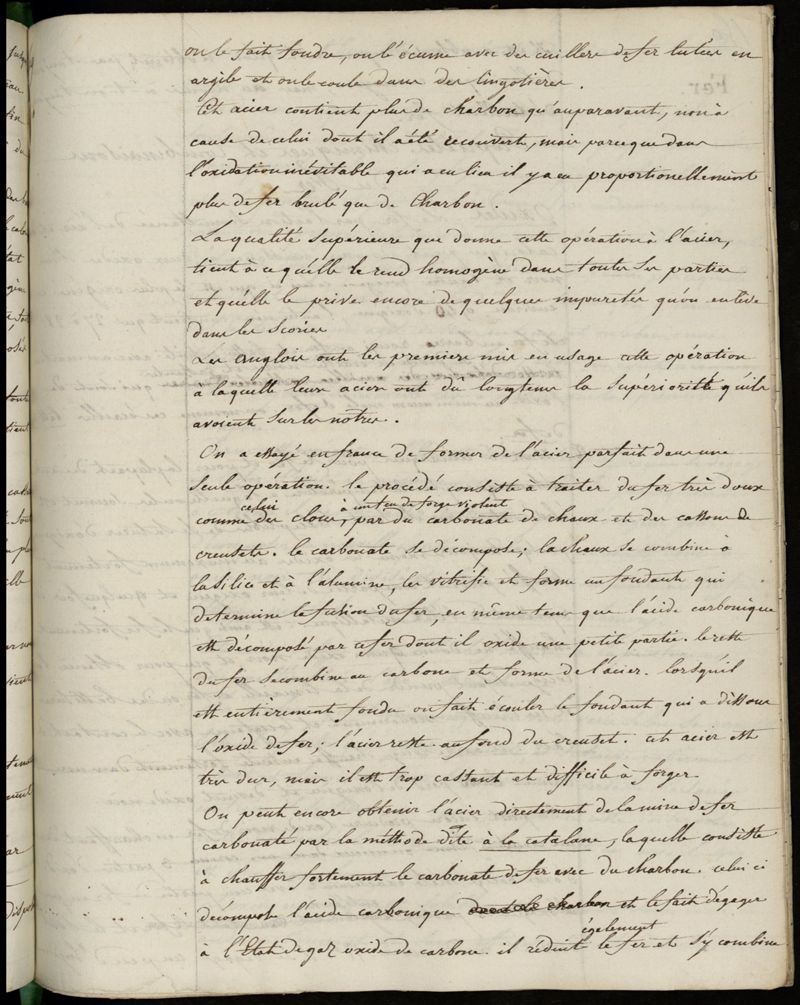 on le fait fondre, on l'écume avec des cuillers de fer lutées en
argile et on le coule dans des lingotières.
Cet acier contient plus de charbon qu'auparavant, non à
cause de celui dont il a été recouvert, mais parceque dans
l'oxidation inévitable qui a eu lieu il y a eu proportionellement
plus de fer brulé que de Charbon.
La qualité supérieure que donne cette opération à l'acier,
tient à ce qu'elle le rend homogène dans toutes ses parties
et qu'elle le prive encore de quelques impuretés qu'on enlève
dans les scories
Les anglois ont les premiers mis en usage cette opération
à laquelle leurs aciers ont dû longtems la supériorité qu'ils
avoient sur les notres.
On a essayé en france de former de l'acier parfait dans une
seule opération. le procédé consiste à traiter du fer très doux
celui à un feu de forge violent
comme des clous, par du carbonate de chaux et des cassons de
creusets. le carbonate se décompose; la chaux se combine à
la silice et à l'alumine, les vitrifie et forme un fondant qui
determine la fusion du fer, en même tems que l'acide carbonique
est décomposé par ce fer dont il oxide une petite partie. le reste
du fer se combine au carbone et forme de l'acier. lorsqu'il
est entièrement fondu on fait écouler le fondant qui a dissous
l'oxide de fer; l'acier reste au fond du creuset. cet acier est
très dur, mais il est trop cassant et difficile à forger
On peut encore obtenir l'acier directement de la mine de fer
carbonaté par la méthode dite à la catalane, laquelle consiste
à chauffer fortement le carbonate de fer avec du charbon. celui ci
décompose l'acide carbonique et le fait dégager
également
à l'Etat de gaz oxide de carbone. il réduit le fer et s'y combine